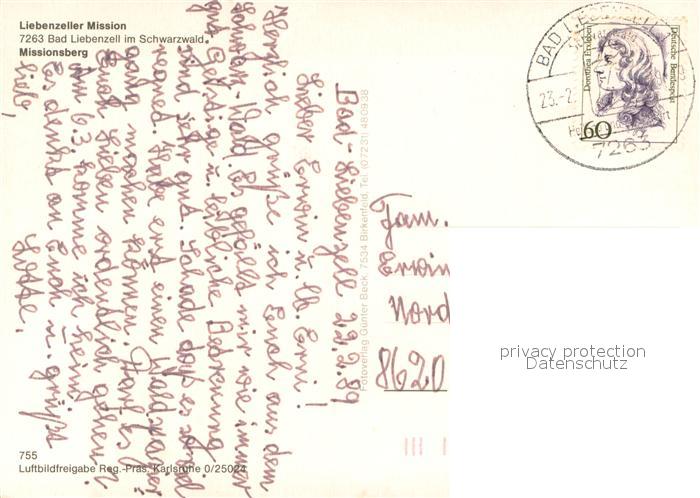 Liebenzeller Mission
7263 Bad Liebenzell im Schwarzwald
Missionsberg
Bad-Liebenzell 22.2.89
Lieber Erwin u. lb. Erni!
Herzlich grüße ich Euch aus dem
Schwarz-Wald. Es gefällt mir wie immer
gut. Geistige u. leibliche Bedienung
sind sehr gut. Schade daß es soviel
regnet. Habe erst einen Waldspazier
gang machen können. Darf es
Euch Lieben ordentlich gehen?
Am 6.3. komme ich heim.
Es denkt an Euch u. grüßt
Liebe,
Lydia.
Fotoverlag Günter Beck, 7534 Birkenfeld, Tel. (07231) 480938
BAD LIEBENZELL
23.-2.
7263
Dorothea Erxleben
Deutsche Bundespost
60
Fam.
Erwin
Nord
8620
privacy protection
Datenschutz
755
Luftbildfreigabe Reg.-Präs. Karlsruhe 0/25024